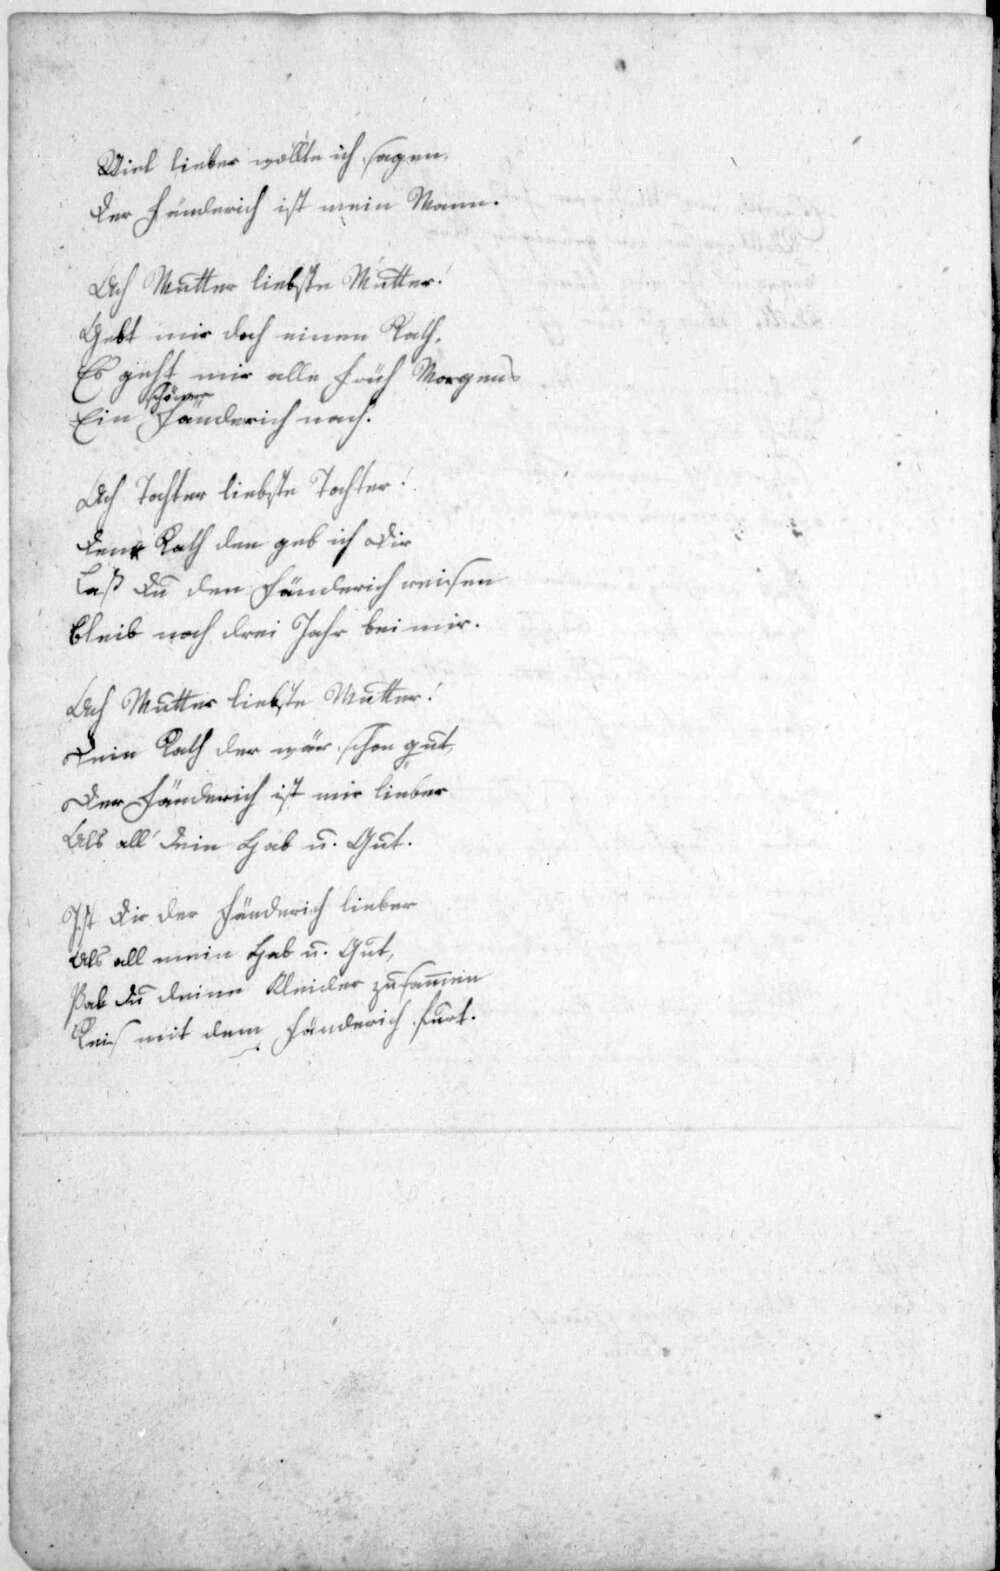 Viel lieber wollte ich sagen,
Der Fänderich ist mein Mann.
Ach Mutter liebste Mutter!
Gebt mir doch einen Rath,
Es geht mir alle früh Morgens
schöner
Ein Fänderich nach.
Ach Tochter liebste Tochter!
Den Rath den geb ich Dir
Laß Du den Fänderich reisen
bleib noch drei Jahr bei mir.
Ach Mutter liebste Mutter!
Dein Rath der wär schon gut
Der Fänderich ist mir lieber
Als all' Dein Hab u. Gut.
Ist Dir der Fänderich lieber
Als all mein Hab u. Gut,
Pak Du deine Kleider zusammen
Reis mit dem Fänderich furt.